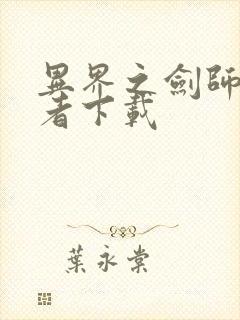 異界之劍師
者下載
葉永棠